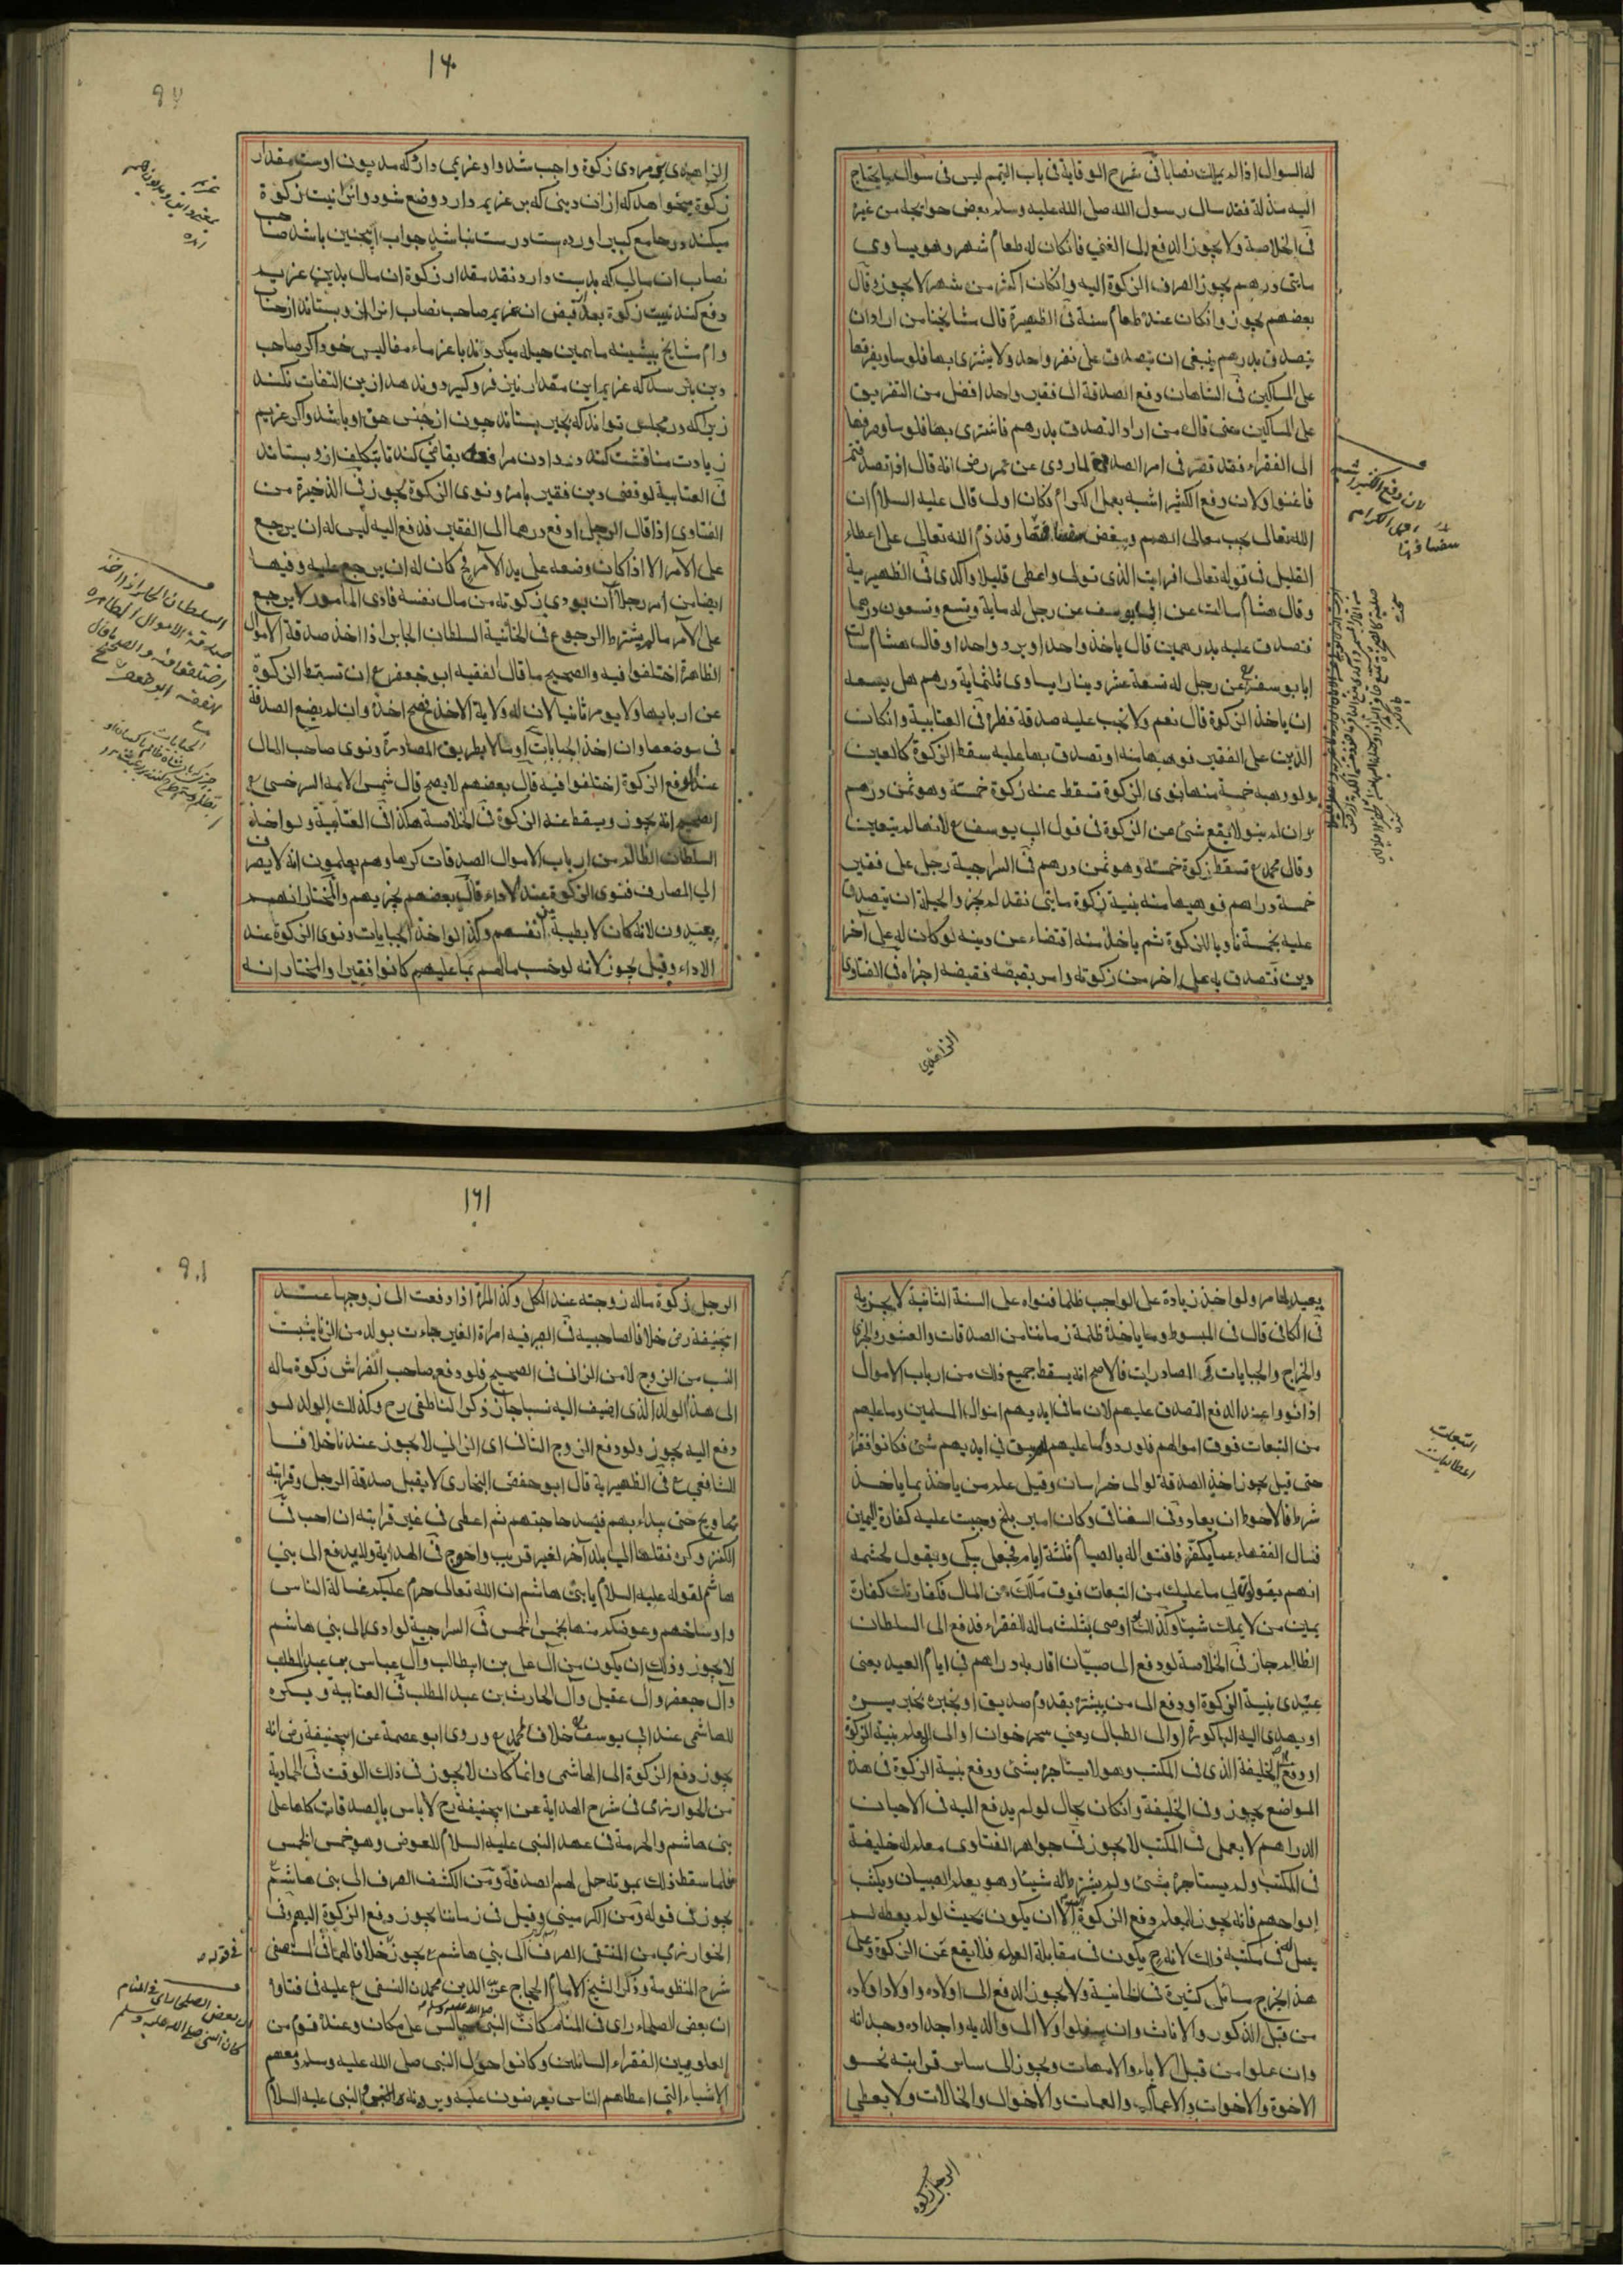 له السوال اذا لم يملك نصابا فى شرح الوقاية فى باب التيمم ليس فى سوال ما يحتاج
اليه مذلة فقد سال رسول الله صلى الله عليه وسلم بعض حوائجه من غيره
فى الخلاصة ولا يجوز الدفع الى الغني فان كان له طعام شهر وهو يساوى
مايتى درهم يجوز الصرف الزكوة اليه وان كان اكثر من شهر لا يجوز وقال
بعضهم يجوز وان كان عنده طعام سنة فى الظهيرة قال مشايخنا من اراد ان
يتصدق بدرهم ينبغى ان يتصدق على نفر واحد ولا يشترى بها فلوسا ويفرقها
على المساكين فى الشاهان ودفع الصدقة الى فقير واحد افضل من التفريق
على المساكين معنى قال من اراد التصدق بدرهم فاشترى بها فلوسا وفرقها
الى الفقراء فقد قصر فى امر الصدقة لما روى عن عمر رضى انه قال اذا تصدقتم
فاغنوا ولان دفع الكثير اشبه بعمل الكرام فكان اولى قال عليه السلام ان
الله تعالى يحب معالى الهمم ويبغض سفسافها وقد ذم الله تعالى على اعطاء
القليل فى قوله تعالى افرايت الذى تولى واعطى قليلا واكدى فى الظهيرية
وقال هشام سالت عن ابى يوسف عن رجل له ماية وتسع وتسعون درهما
فتصدق عليه بدرهمين قال ياخذ واحدا ويرد واحدا وقال هشام سالت
ابا يوسف عن رجل له تسعة عشر دينارا يساوى ثلثماية درهم هل يسعه
ان ياخذ الزكوة قال نعم ولا تجب عليه صدقة فطر فى العتابية وان كان
الدين على الفقير فوهبها منه او تصدق بها عليه سقط الزكوة كالعين
ولو وهبه خمسة منها بنوى الزكوة تسقط عنه زكوة خمسة وهو ثمن درهم
وان لم ينو لا يقع شئ عن الزكوة فى قول ابى يوسف ع لانها لم يتعين
وقال محمد ع تسقط زكوة خمسة وهو ثمن درهم فى السراجية رجل على فقير
خمسة دراهم فوهبها منه بنية زكوة مايتى نقد لم يجز والحيلة ان يتصدق
عليه بخمسة ناويا للزكوة ثم ياخذ منه اقتضاء عن دينه لو كان له على آخر
دين فتصدق به على اخر من زكوته وامر بقبضه فقبضه اجزاه فى الفتاوى
لان دفع الكثير اشبه
بعمل الكرام
سفسافها
الزاهدي
١٤٠
الزاهدى مردى زكوة واجب شد واو غريمى دارد كه مديون اوست مقدار
زكوة ميخواهد كه ازان دينى كه بر غريم دارد وضع شود وانرا نيت زكوة
ميكند در جامع كبير آورده ست درست نباشد جواب اينچنين باشد صاحب
نصاب ان مالى كه بدست دارد نقد مقدار زكوة ان مال بدين غريم
دفع كند نيت زكوة بعد قبض ان غريم صاحب نصاب انرا ازو بستاند از حساب
وام مشايخ پيشينه ما همين حيله ميكردند با غرماء مفاليس خود اگر صاحب
دين بترسد كه غريم اين مقدار نيز فرو گيرد وندهد ازين التفات نكند
زيرا كه در مجلس تواند كه بجبر بستاند چون از جنس حق او باشد واگر غريم
زيادت مناقشت كند در دادن مرافعه بقاضى كند تا بتكليف ازو بستاند
فى العتابية لو قضى دين فقير بامره ونوى الزكوة يجوز فى الذخيرة من
الفتاوى اذا قال الرجل ادفع درهما الى الفقير فدفع اليه ليس له ان يرجع
على الآمر الا اذا كان وضعه على يد الآمر فح كان له ان يرجع عليه وفيها
ايضا من امر رجلا ان يودى زكوته من مال نفسه فادى المأمور لا يرجع
على الآمر ما لم يشترط الرجوع فى الخانية السلطان الجابر اذا اخذ صدقة الاموال
الظاهرة اختلفوا فيه والصحيح ما قال الفقيه ابو جعفر ع ان تسقط الزكوة
عن اربابها ولا يومر ثانيا لان له ولاية الاخذ فصح اخذه وان لم يضع الصدقة
فى موضعها وان اخذ الجبايات او مالا بطريق المصادرة ونوى صاحب المال
عند الدفع الزكوة اختلفوا فيه قال بعضهم لا يصح قال شمس الائمه السرخسى ع
الصحيح انه يجوز ويسقط عنه الزكوة فى الخلاصة هكذا فى العتابية ولو اخذ
السلطان الظالم من ارباب الاموال الصدقات كرها وهم يعلمون انه لا يصرف
الى المصارف فنوى الزكوة عند الاداء قال بعضهم يجزيهم والمختار انهم
يعيدون لانه كان لا بطيبة من انفسهم وكذا لو اخذ الجبايات ونوى الزكوة عند
الاداء وقيل يجوز لانه لو حسب مالهم بما عليهم كانوا فقيرا والمختار انه
السلطان الجابر اذا اخذ
صدقة الاموال الظاهرة
اختلفوا فيه والصحيح ما قال
الفقيه ابو جعفر
يعيد الحامر ولو اخذ زيادة على الواجب ظلما فنواه على السنة الثانية لا يجزيه
فى الكافى قال فى المبسوط وما ياخذه ظلمة زماننا من الصدقات والعشور والجزى
والخراج والجبايات والمصادرات فالاصح انه يسقط جميع ذلك من ارباب الاموال
اذا نووا عند الدفع التصدق عليهم لان ما فى ايديهم اموال المسلمين وما عليهم
من التبعات فوق اموالهم فلو ردوا ما عليهم لم يبق فى ايديهم شئ فكانوا فقراء
حتى قيل يجوز اخذ الصدقة لوالى خراسان وقيل علم من ياخذ بما ياخذ
شرط فالاحوط ان يعاد وفى السغناقى وكان امير بلخ وجبت عليه كفارة اليمين
فسال الفقهاء عما يكفر فافتوا له بالصيام ثلثة ايام فجعل يبكى ويقول لحشمه
انهم يقولون لى ما عليك من التبعات فوق مالك من المال فكفارتك كفارة
يمين من لا يملك شيئا وكذلك لو اوصى بثلث ماله للفقراء فدفع الى السلطان
الظالم جاز فى الخلاصة لو دفع الى صبيان اقاربه دراهم فى ايام العيد يعنى
عيدى بنية الزكوة او دفع الى من يبشره بقدوم صديق او يخبره بخبر يسره
او يهدى اليه الباكورة او الى الطبال يعنى سحرخوان او الى المعلم بنية الزكوة
او دفع الخليفة الذى فى المكتب وهو لا يستاجره بشئ ودفع بنية الزكوة فى هذه
المواضع يجوز وفى الخليفة وان كان بحال لو لم يدفع اليه فى الاحيان
الدراهم لا يعمل فى المكتب لا يجوز فى جواهر الفتاوى معلم له خليفة
فى المكتب ولم يستاجره بشئ ولم يشترط له شيئا وهو يعلم الصبيان ويكتب
الواحهم فانه يجوز للمعلم دفع الزكوة اليه الا ان يكون بحيث لو لم يعطه لم
يعمل له فى مكتبه وذلك لانه ح يكون فى مقابلة العمل فلا يقع عن الزكوة وعلى
هذا يخرج مسائل كثيرة فى الخانية ولا يجوز الدفع الى اولاده واولاد اولاده
من قبل الذكور والاناث وان سفلوا ولا الى والديه واجداده وجداته
وان علوا من قبل الآباء والامهات ويجوز الى سائر قرابته نحو
الاخوة والاخوات والاعمال والعمات والاخوال والخالات ولا يعطي
التبعات
الرجل زكوة
١٤١
الرجل زكوة ماله زوجته عند الكل وكذا المرأة اذا دفعت الى زوجها عند
ابيحنيفة رض خلافا لصاحبيه فى الصيرفيه امراة الغير جاءت بولد من الزنا يثبت
النسب من الزوج لا من الزانى فى الصحيح فلو دفع صاحب الفراش زكوة ماله
الى هذا الولد الذى اضيف اليه نسبا جاز ذكره الناطفى رح وكذلك الولد لو
دفع اليه يجوز ولو دفع الزوج الثانى اى الزانى لا يجوز عندنا خلافا
للشافعي ع فى الظهيرية قال ابو حفص البخارى لا يقبل صدقة الرجل وقرابته
محاويج حتى يبداء بهم فيسد حاجتهم ثم اعطى فى غير قرابته ان احب فى
الكنز وكره نقلها الى بلد آخر لغير قريب واحوج فى الهداية ولا يدفع الى بني
هاشم لقوله عليه السلام يا بنى هاشم ان الله تعالى حرم عليكم غسالة الناس
واوساخهم وعوضكم منها بخمس الخمس فى السراجية لو ادى الى بني هاشم
لا يجوز وذلك ان يكون من آل على بن ابيطالب وآل عباس بن عبد المطلب
وآل جعفر وآل عقيل وآل الحارث بن عبد المطلب فى العتابية ويكره
للهاشمى عند ابى يوسف خلافا لمحمد ع وروى ابو عصمة عن ابيحنيفة رض انه
يجوز دفع الزكوة الى الهاشمى وانما كان لا يجوز فى ذلك الوقت فى الحمادية
من الخوارزمى فى شرح الهداية عن ابيحنيفة رح لا باس بالصدقات كلها على
بنى هاشم والحرمة فى عهد النبى عليه السلام للعوض وهو خمس الخمس
فلما سقط ذلك بموته حل لهم الصدقة ومن الكشف الصرف الى بنى هاشم
يجوز فى قوله ومن الكرمينى وقيل فى زماننا يجوز دفع الزكوة اليهم وفى
الخوارزمي من المنتقى الصرف الى بني هاشم ع يجوز خلافا لهما فى المستصفى
شرح المنظومة وذكر الشيخ الامام الحجاج عز الدين محمد النسفى ع عليه فى فتاوه
ان بعض الصلحاء راى فى المنام كان النبى صلى الله عليه وسلم جالس على مكان وعنده قوم من
العلويين الفقراء السائلين وكانوا حول النبى صلى الله عليه وسلم ومعهم
الاشياء التي اعطاهم الناس يعرضون عليه النبى عليه السلام
بعض الصلحا راى فى المنام
كان النبى صلى الله عليه وسلم